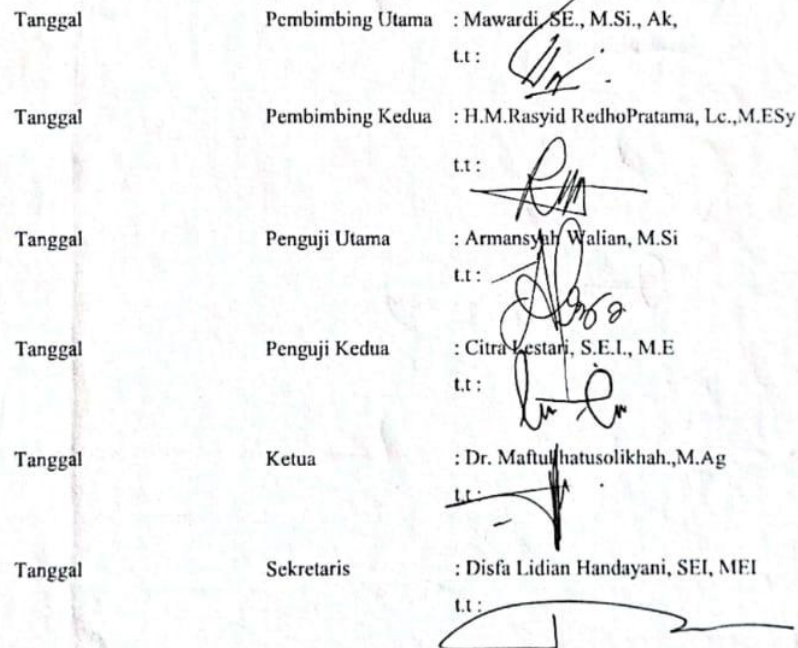 Tanggal Pembimbing Utama : Mawardi, SE., M.Si., Ak,
t.t :
Tanggal Pembimbing Kedua : H.M.Rasyid RedhoPratama, Lc.,M.ESy
t.t :
Tanggal Penguji Utama : Armansyah Walian, M.Si
t.t :
Tanggal Penguji Kedua : Citra Lestari, S.E.I., M.E
t.t :
Tanggal Ketua : Dr. Maftukhatusolikhah.,M.Ag
t.t :
Tanggal Sekretaris : Disfa Lidian Handayani, SEI, MEI
t.t :